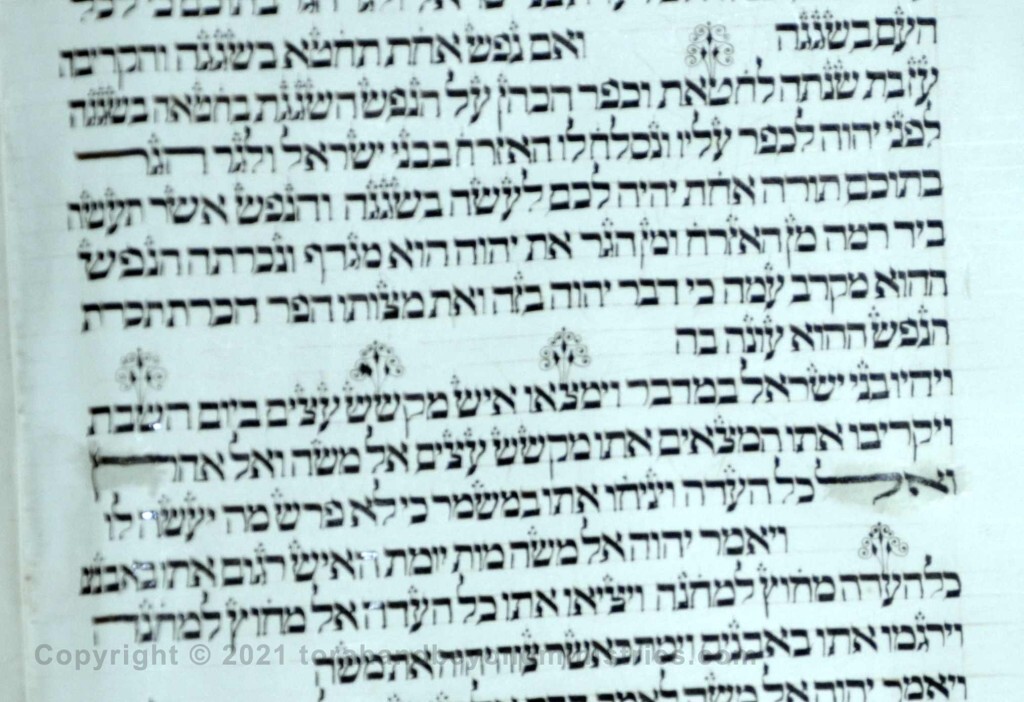 ישראל ולגר הגר בתוכם כי לכל
העם בשגגה ואם נפש אחת תחטא בשגגה והקריבה
עז בת שנתה לחטאת וכפר הכהן על הנפש השגגת בחטאה בשגגה
לפני יהוה לכפר עליו ונסלח לו האזרח בבני ישראל ולגר הגר
בתוכם תורה אחת יהיה לכם לעשה בשגגה והנפש אשר תעשה
ביד רמה מן האזרח ומן הגר את יהוה הוא מגדף ונכרתה הנפש
ההוא מקרב עמה כי דבר יהוה בזה ואת מצותו הפר הכרת תכרת
הנפש ההוא עונה בה
ויהיו בני ישראל במדבר וימצאו איש מקשש עצים ביום השבת
ויקריבו אתו המצאים אתו מקשש עצים אל משה ואל אהרן
ואל כל העדה ויניחו אתו במשמר כי לא פרש מה יעשה לו
ויאמר יהוה אל משה מות יומת האיש רגום אתו באבנים
כל העדה מחוץ למחנה ויציאו אתו כל העדה אל מחוץ למחנה
וירגמו אתו באבנים וימת כאשר צוה יהוה את משה
ויאמר יהוה אל משה לאמר
Copyright © 2021